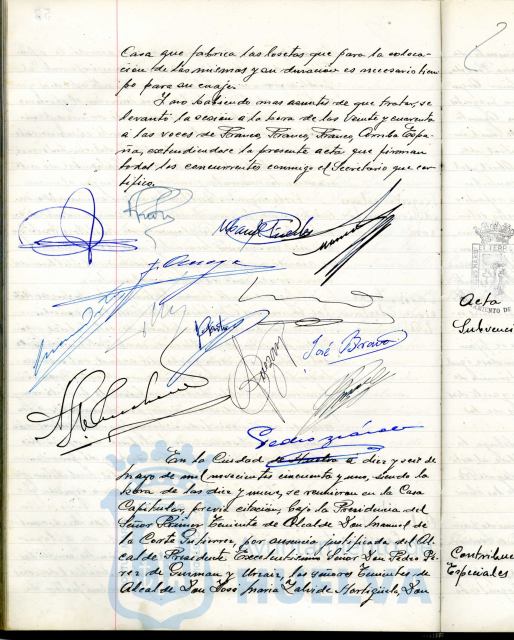 Casa que fabrica las losetas que para la coloca-
ción de las mismas y su duración es necesario tiem
po para su cuaje.
Y no habiendo mas asuntos de que tratar, se
levantó la sesión a la hora de las veinte y cuarenta
a las voces de Franco, Franco, Franco, Arriba Espa-
ña, extendiendose la presente acta que firman
todos los concurrentes conmigo el Secretario que cer
tifico.
José Bravo
Acta
Subvenci
En la Ciudad de Huelva a diez y seis de
mayo de mil novecientos cincuenta y uno, siendo la
hora de las diez y nueve, se reunieron en la Casa
Capitular, previa citación, bajo la Presidencia del
Señor Primer Teniente de Alcalde Don Manuel de
la Corte Gutierrez, por ausencia justificada del Al
calde Presidente Excelentisimo Señor Don Pedro Pé
rez de Guzman y Urzaiz, los señores Tenientes de
Alcalde Don José Maria Zalvide Hortigüela, Don
Contribuc
Especiales
HUELVA